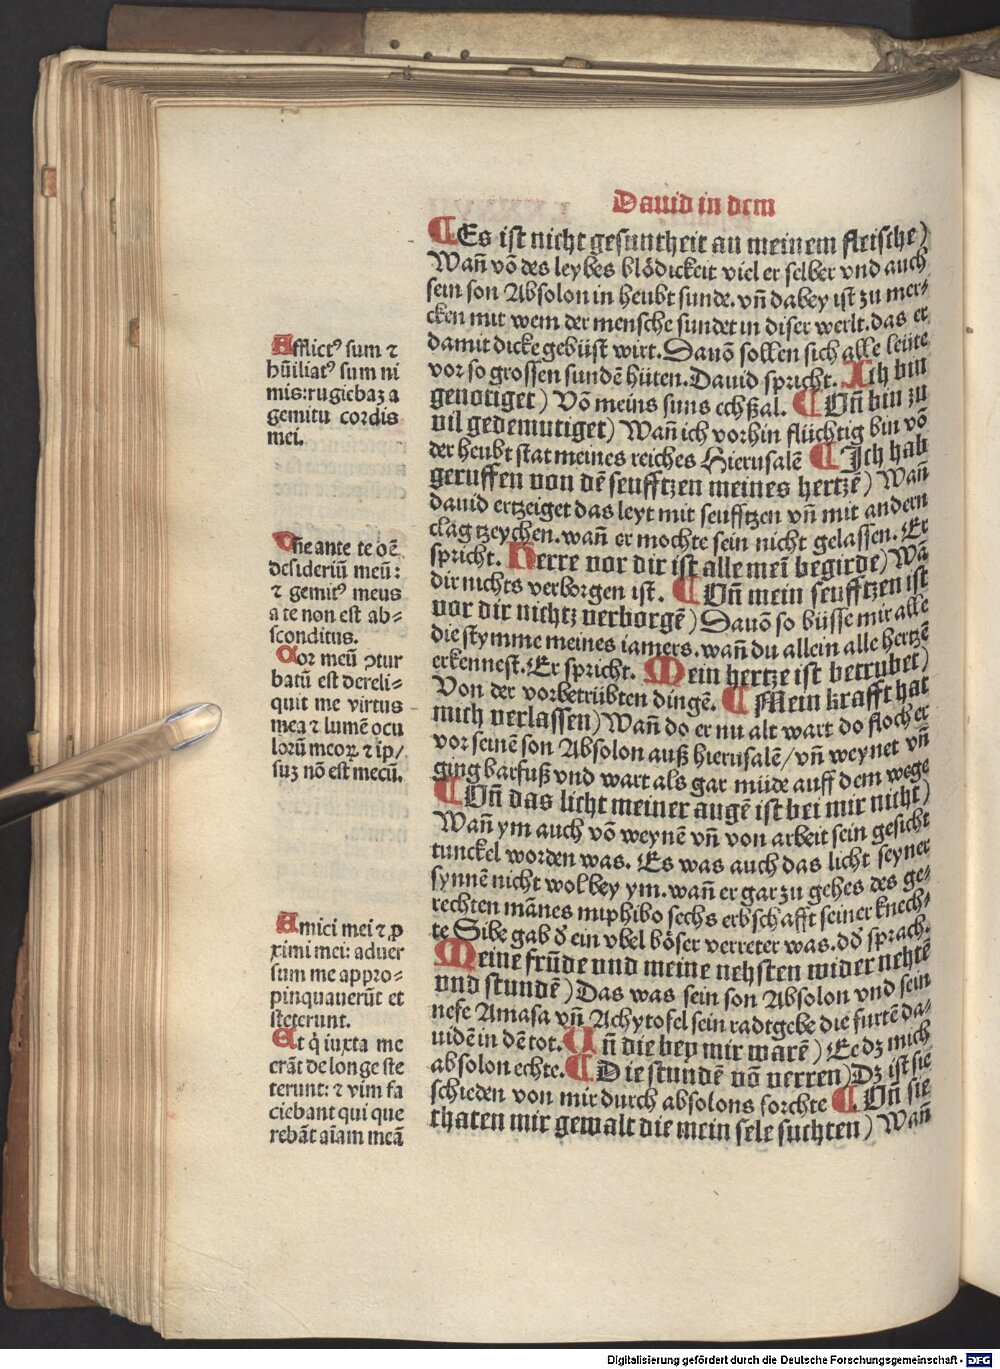 Dauid in dem
¶ Es ist nicht gesuntheit an meinem fleische)
Wañ võ des leybes blödickeit viel er selber vnd auch
sein son Absolon in heubt sunde. vñ dabey ist zu mer⸗
cken mit wem der mensche sundet in diser werlt. das er
damit dicke gebüst wirt. Dauõ sollen sich alle leüte
vor so grossen sundẽ hüten. Dauid spricht. Ich bin
genotiget) Võ meins suns echßal. ¶ Vñ bin zu
vil gedemutiget) Wañ ich vorhin flüchtig bin võ
der heubt stat meines reiches Hierusalẽ ¶ Ich hab
geruffen von dẽ seufftzen meines hertzẽ) Wañ
dauid ertzeiget das leyt mit seufftzen vñ mit andern
clag tzeychen. wañ er mochte sein nicht gelassen. Er
spricht. Herre vor dir ist alle meĩ begirde) Wã
dir nichts verborgen ist. ¶ Vñ mein seufftzen ist
vor dir nichtz verborgẽ) Dauõ so büsse mir alle
die stymme meines iamers. wañ du allein alle hertzẽ
erkennest. Er spricht. Mein hertze ist betrubet)
Von der vorbetrübten dingẽ. ¶ Mein krafft hat
mich verlassen) Wañ do er nu alt wart do floch er
vor seinẽ son Absolon auß hierusalẽ/ vñ weynet vñ
ging barfuß vnd wart als gar müde auff dem wege
¶ Vñ das licht meiner augẽ ist bei mir nicht)
Wañ ym auch võ weynẽ vñ von arbeit sein gesicht
tunckel worden was. Es was auch das licht seyner
synnẽ nicht wol bey ym. wañ er gar zu gehes des ge⸗
rechten mãnes miphibo sechs erbschafft seiner knech⸗
te Sibe gab ð ein vbel böser verreter was. dð sprach.
Meine frũde vnd meine nehsten wider nehtẽ
vnd stundẽ) Das was sein son Absolon vnd sein
nefe Amasa vñ Achytofel sein radtgebe die furtẽ da⸗
uidẽ in dẽ tot. Uñ die bey mir warẽ) Ee dz mich
absolon echte. ¶ Die stundẽ võ verren) Dz ist sie
schieden von mir durch absolons forchte ¶. Vñ sie
thaten mir gewalt die mein sele suchten) Wañ
Afflictꝰ sum ⁊
hũiliatꝰ sum ni
mis: rugiebaʒ a
gemitu cordis
mei.
Dñe ante te oẽ
desideriũ meũ:
⁊ gemitꝰ meus
a te non est ab⸗
sconditus.
Cor meũ ↄtur
batũ est dereli⸗
quit me virtus
mea ⁊ lumẽ ocu
lorũ meoꝝ ⁊ ip̃/
suʒ nõ est mecũ.
Amici mei ⁊ ꝓ
ximi mei: aduer
sum me appro⸗
pinquauerũt et
steterunt.
Et q̇ iuxta me
erãt de longe ste
terunt: ⁊ vim fa
ciebant qui que
rebãt aĩam meã
Digitalisierung gefördert durch die Deutsche Forschungsgemeinschaft - DFG